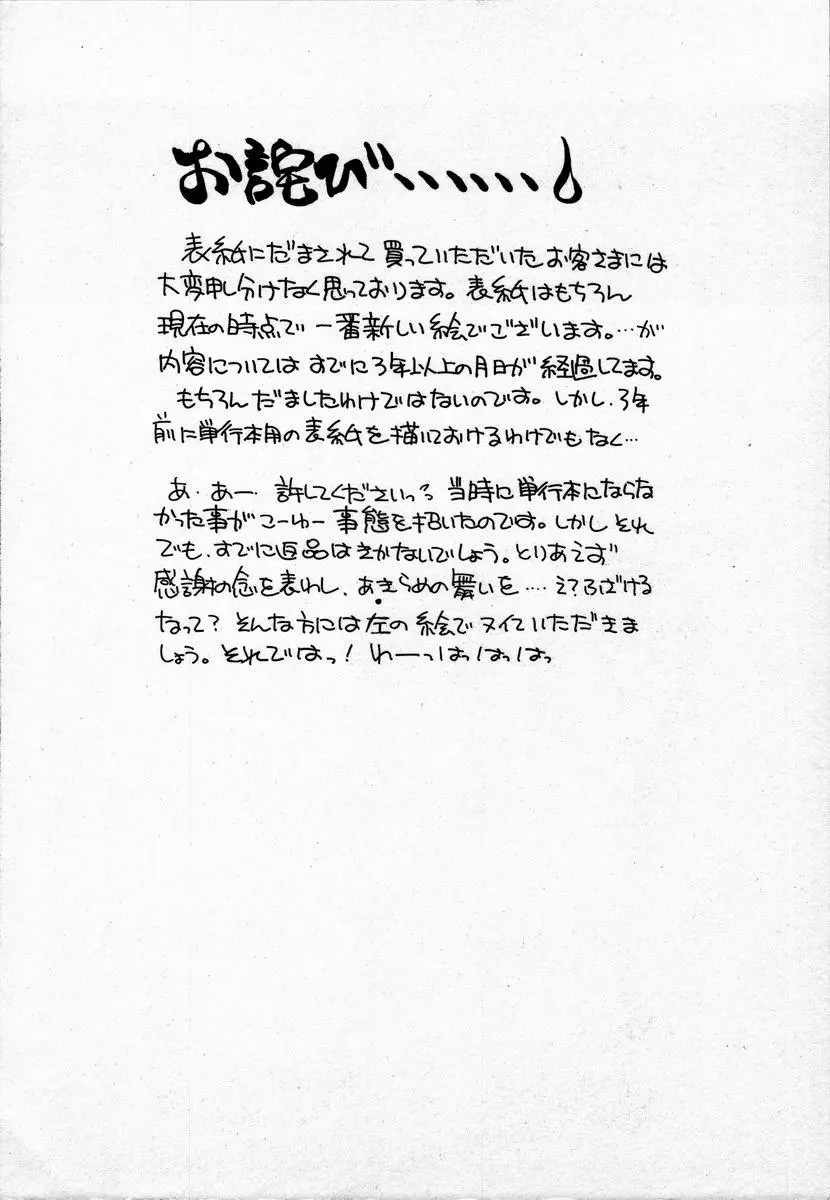 お詫び、、、、、、
表紙にだまされて買っていただいたお客さまには
大変申し分けなく思っております。表紙はもちろん
現在の時点で一番新しい絵でございます。…が
内容についてはすでに3年以上の月日が経過してます。
もちろんだましたわけではないのです。しかし、3年
前に単行本用の表紙を描いておけるわけでもなく…
あ・あー・許してくださいっ、当時に単行本にならな
かった事がこーゆー事態を招いたのです。しかしそれ
でも、すでに返品はきかないでしょう。とりあえず
感謝の念を表わし、あきらめの舞いを…．え?ふざける
なって?そんな方には左の絵でヌイていただきま
しょう。それではっ!わーっはっはっはっ